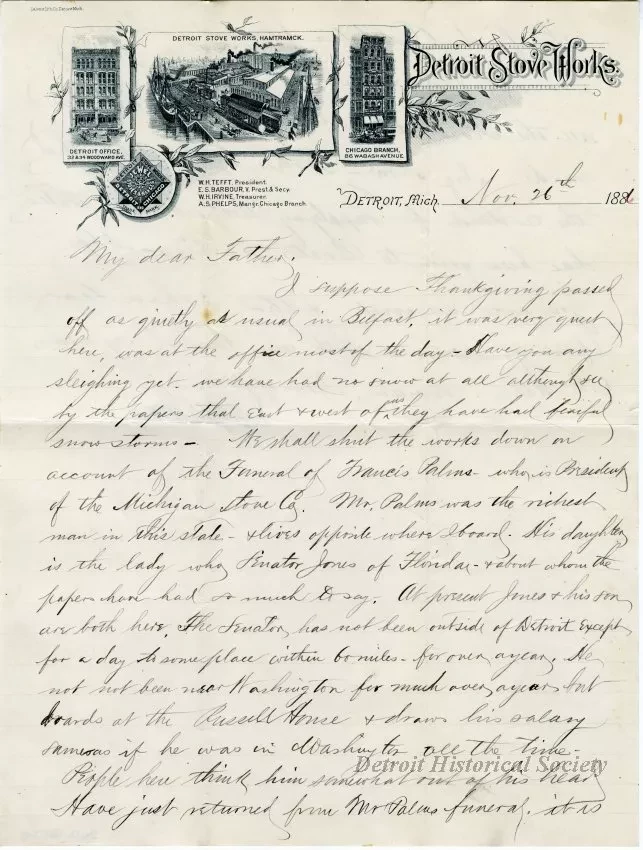 DETROIT STOVE WORKS, HAMTRAMCK.
Detroit Stove Works.
DETROIT OFFICE,
32 & 34 WOODWARD AVE.
CHICAGO BRANCH,
86 WABASH AVENUE.
W.H. TEFFT, President.
E.S. BARBOUR, V. Prest & Secy.
W.H. IRVINE, Treasurer.
A.S. PHELPS, Mangr. Chicago Branch.
DETROIT, Mich. Nov. 26th 1886
My dear Father,
I suppose Thanksgiving passed
off as quietly as usual in Belfast, it was very quiet
here, was at the office most of the day - Have you any
sleighing yet - we have had no snow at all although see
by the papers that East & west of us they have had fearful
snow storms - We shall shut the works down on
account of the Funeral of Francis Palms - who is President
of the Michigan Stove Co. Mr. Palms was the richest
man in this state - & lives opposite where I board. His daughter
is the lady who Senator Jones of Florida - & about whom the
papers have had so much to say. At present Jones & his son
are both here. The Senator has not been outside of Detroit except
for a day to some place within 60 miles - for over a year. He
not not been near Washington for much over a year but
boards at the Russell House & draws his salary
same as if he was in Washington all the time -
People here think him somewhat out of his head
Have just returned from Mr Palms funeral, it is
Detroit Historical Society